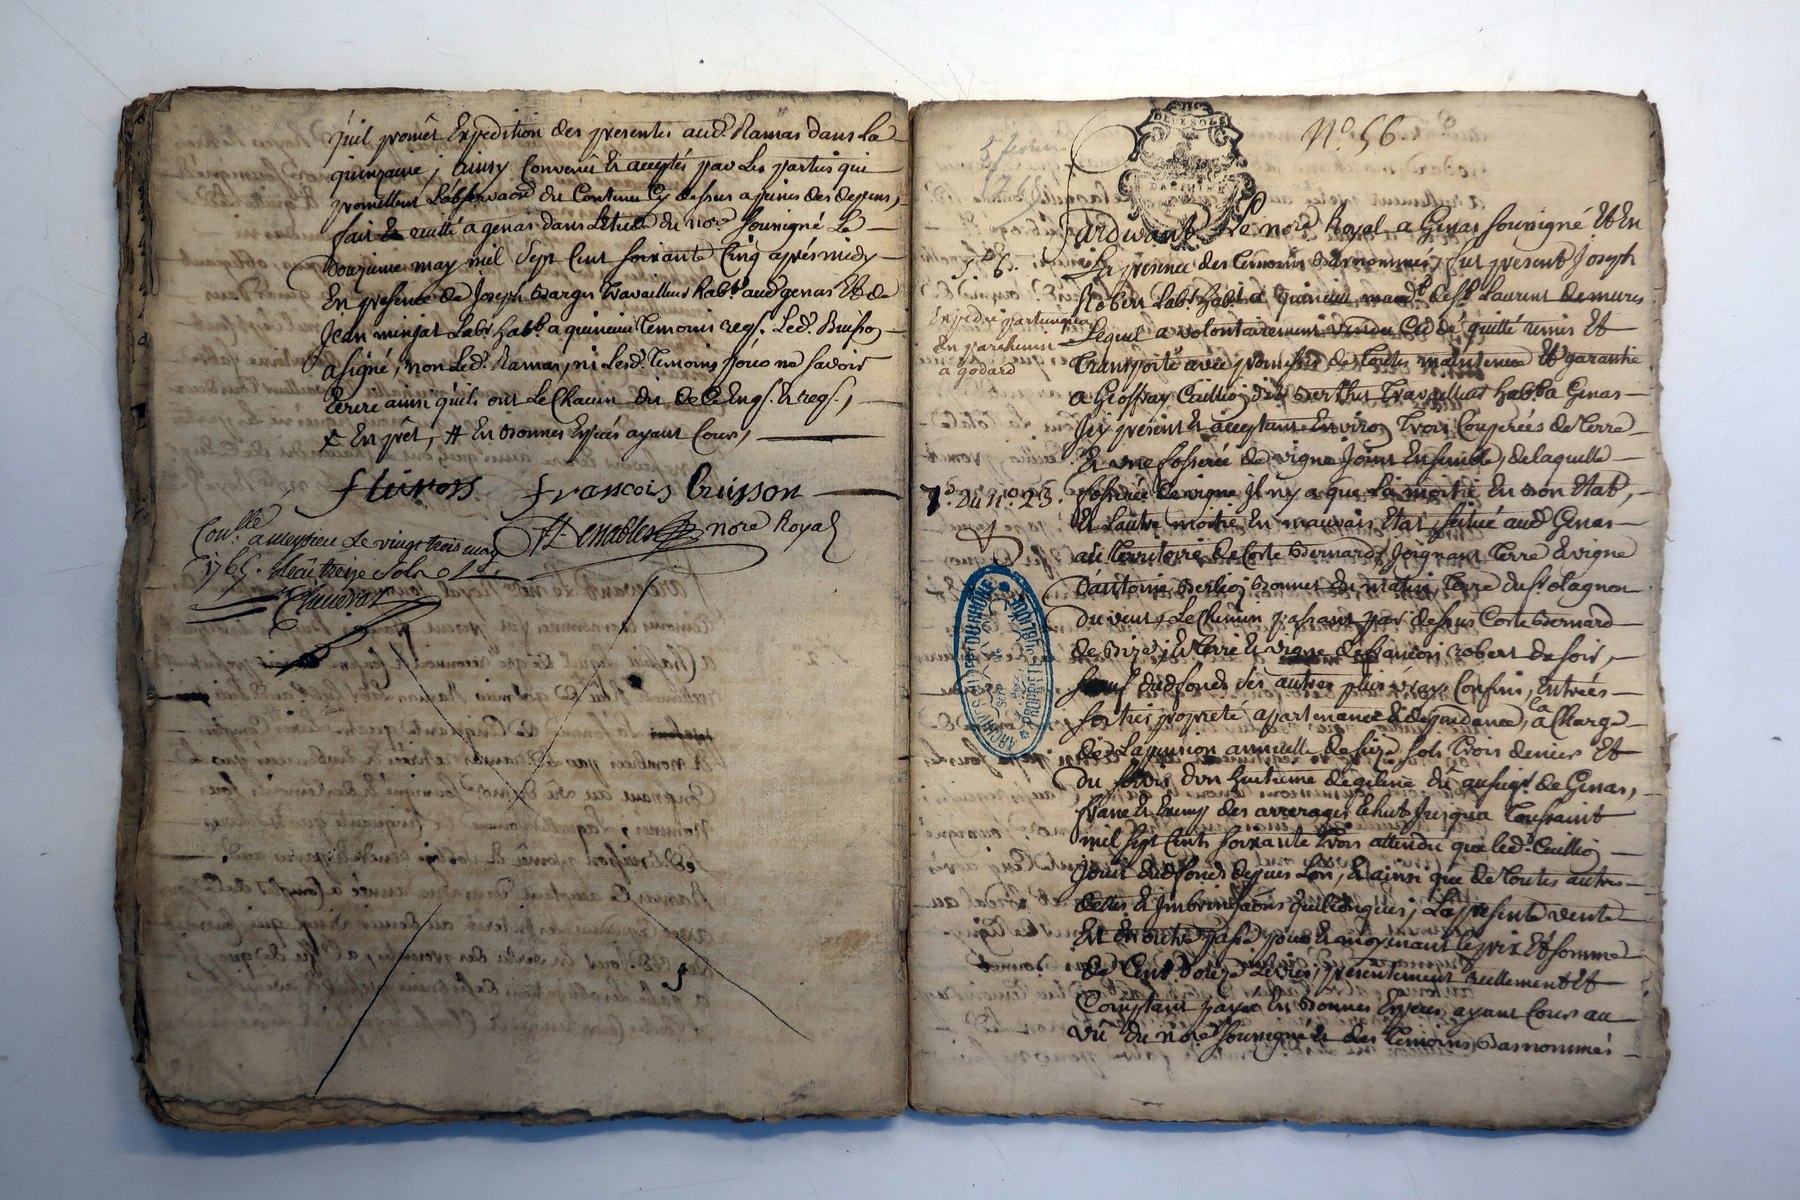 qu'il promet Expedition des presentes aud. Ramas dans la
quinzaine, Ainsy Convenu & acceptés par Les parties qui
promettent L'observaõn du Contenu Cy dessus a peines des depens,
fait & recitté a genas dans L'etude du nore. soussigné Le
Douzieme may mil sept Cent soixante Cinq apres midy
En presence de Joseph Barges travailleur habt. aud. genas Et de
Jean minjat Labr. habt. a quincieu temoins reqs. Led. Buisson
a signé, non Led. Ramas, ni Lesd. temoins pour ne savoir
Ecrire ainsi qu'ils ont Le Chacun dit de Ce Enqs. & reqs.,
En prêt, # En Bonnes Especes ayant Cours,
françois buisson
nore Royal
Conlle. a meyzieu Le vingt trois may
1765. Recu treize sols
N.o 56.
5 fevrier
1765
DEUX SOLS
DAUPHINÉ
Pardevant Le nore Royal a Genas soussigné Et En
La presence des temoins Basnommés, fut present Joseph
Robert Labr. habt. a quincieu mandt. de st. Laurent de mures
Expedié
En parchemin
a godard
Lequel a volontairement vendu Cedé quitté remis Et
transporté avec promesse de toutes maintenue Et garantie
a Geoffray Cuillion dit Berthet travailleur habt. a Genas
Icy present & acceptant Environ trois Couperées de terre
& une fosserée de vigne Joint Ensemble, de laquelle
7.e du n.o 23.
fosserée de vigne Il n'y a que La moitié En Bon Etat,
& L'autre moitié En mauvais Etat, située aud. Genas
au territoire de Coste Bernard, Joignant terre & vigne
d'antoine Bonnet du matin, terre du sr. olagnon
du vent, Le Chemin passant par dessus Coste Bernard
de Bize, & terre & vigne de francois robert de soir,
sauf dud. fonds ses autres plus vrays Confins, Entrées
sorties proprieté appartenance & dependance, a la Charge
de La pension annuelle de seize sols trois deniers Et
du d'un huitieme de geline dû au seigr. de Genas,
franc & Exemp des arrerages Echut Jusqu'a toussaint
mil sept Cent soixante trois attendu que Led. Cuillion
Jouit dud. fonds depuis Lors, & ainsi que de toutes autres
dettes & Imbrinçaons quelconques, La presente vente
Est En outre passé pour & moyenant Le prix Et somme
de Cent Douze Livres, presentement reellement Et
Comptant payée En Bonnes Especes ayant Cours au
vû du nore. soussigné & des temoins Basnommés
ARCHIVES DU DEPT DU RHONE
PROPRIETE PUBLIQUE